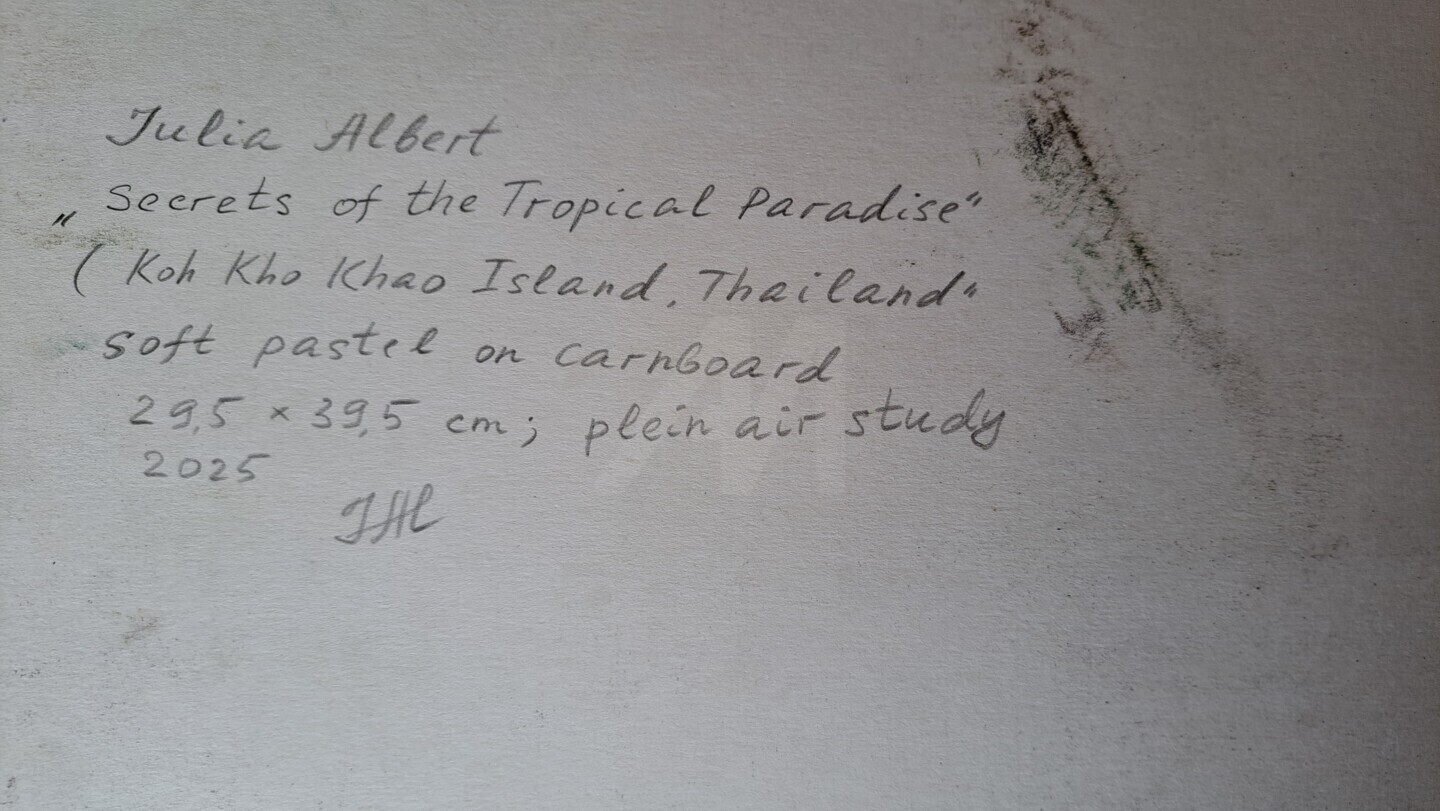 Julia Albert
„Secrets of the Tropical Paradise“
( Koh Kho Khao Island, Thailand“
soft pastel on carnboard
29,5 × 39,5 cm; plein air study
2025
JAl